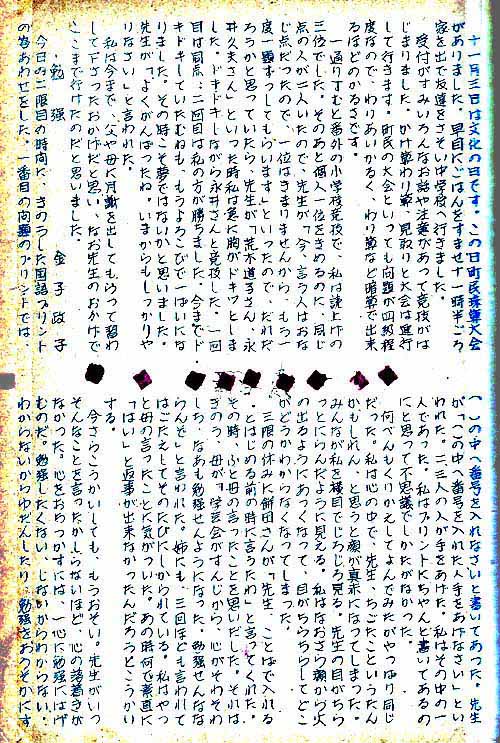 十一月三日は文化の日です。この日町民珠算大会
がありました。早目にごはんをすませ十一時半ごろ
家を出て友達をさそい中学校へ行きました。
受付がすみいろんなお話や注意があって競技がは
じまりました。かけ算わり算、見取りと大会は進行
して行きます。町民の大会といっても問題が四級程
度なので、わりあいかるく、わり算など暗算で出来
るほどのかるさです。
一通りすむと番外の小学校競技で、私は読上げの
三位でした。そのあと個人一位をきめるのに、同じ
点の人が二人いたので、先生が「今、言う人はおな
じ点だったので、一位はきまりませんから、もう一
度一題ずつしてもらいます」といったので、だれだ
ろうかと思っていたら、先生が「荒木道子さん、永
井久夫さん」といった時私は急に胸がドキッとしま
した。ドキドキしながら永井さんと競技した。一回
目は同点、二回目は私の方が勝ちました。今までド
キドキしていたむねも、もうよろこびで一ぱいにな
りました。その時こそ夢ではないかと思いました。
先生が「よくがんばったね。いまからもしっかりや
りなさい」と言われた。
私は今まで、父や母に月謝を出してもらって習わ
して下さったおかげだと思い、なお先生のおかげで
ここまで行けたのだと思いました。
勉強 金子政子
今日の二限目の時間に、きのうした国語プリント
の答あわせをした。一番目の問題のプリントでは、
「（この中へ番号を入れなさいと書いてあった。先生
が「この中へ番号を入れた人手をあげなさい」とい
われた。二、三人の人が手をあげた。私はその中の一
人であった。私はプリントにちゃんと書いてあるの
にと思って不思議でしかたがなかった。
何べんもくりかえしてよんでみたがやっぱり同じ
だった。私は心の中で、先生、ちごたこというたん
かもしれん、と思うと顔が真赤になってしまった。
みんなが私を横目でじろじろ見る。先生の目がちら
っとにらんだように見える。私はなおさら顔から火
の出るようにあつくなって、目がちらちらしてどこ
がどうかわからなくなってしまった。
三限の休みに餅田さんが「先生、ことばで入れる
とはじめる前の時に言うたわ」と言ってくれた。
その時、ふと母の言ったことを思いだした。それは
きのう、母が「学芸会がすんじから、心がそわそわ
しち、なあも勉強せんようになった。勉強せんなな
らんぞ」と言われた。姉にも、三回ほども言われて
はごたえしてそのたびにしかられている。私はやっ
と母の言ったことに気がついた。あの時何で素直に
「はい」と返事が出来なかったんだろうとこうかい
する。
今さらこうかいしても、もうおそい。先生がいつ
そんなことを言ったかしらないほど、心の落着きが
なかった。心をおちつかすには、一心に勉強にはげ
むのだ。勉強したくない、しないからわからない。
わからないからゆだんしたり、勉強をおろそかにす